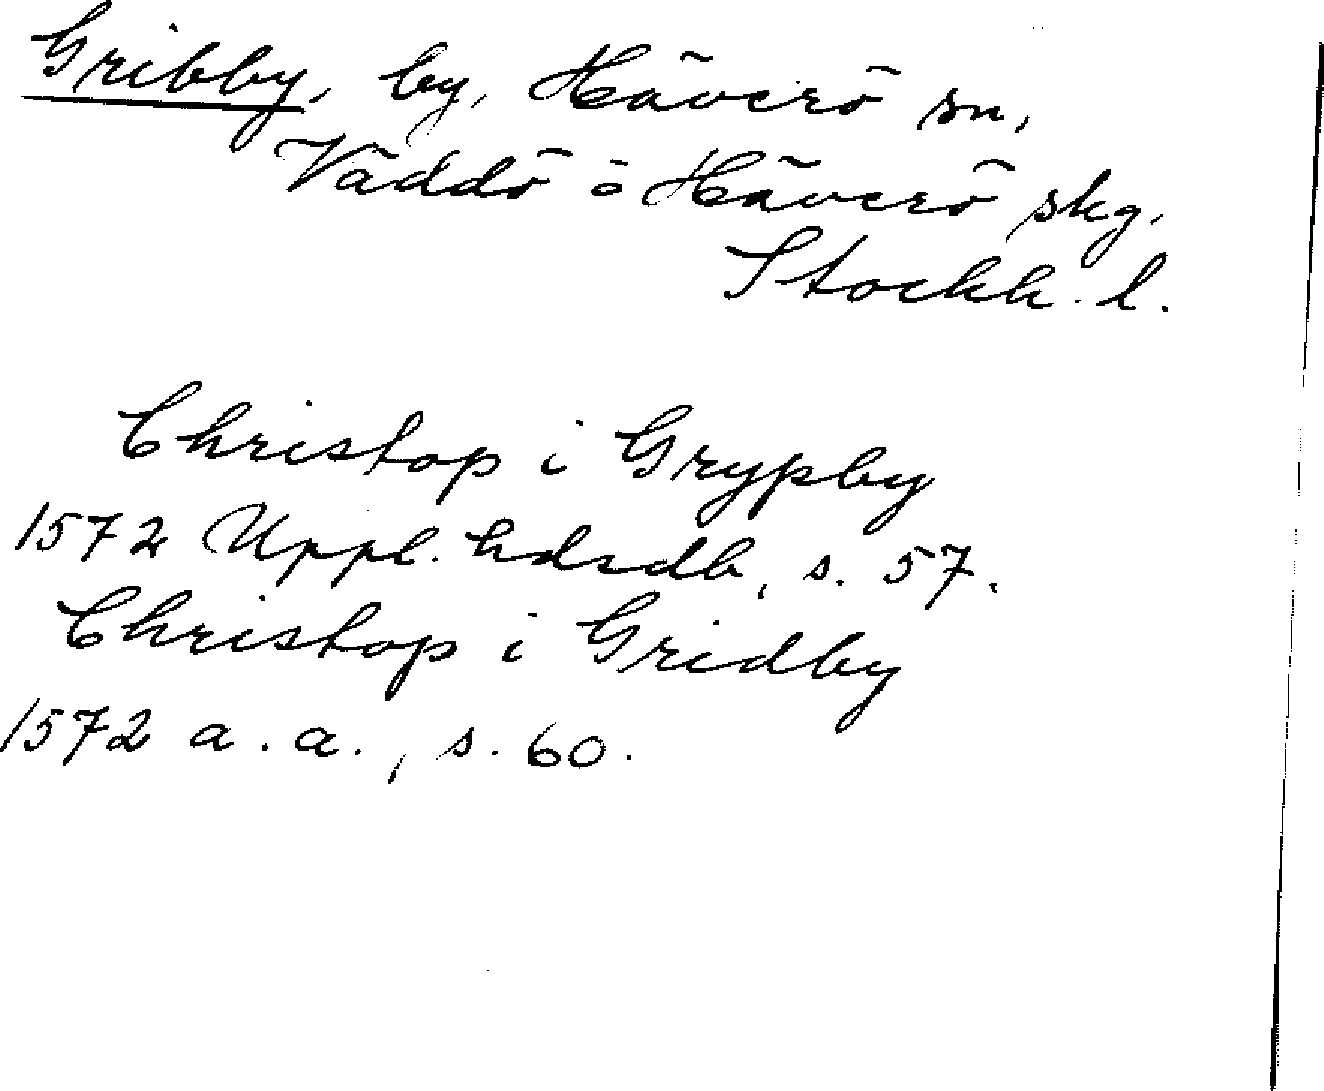 Gribby, by, Häverö sn,
Väddö o Häverö skg.
Stockh. l.
Christop i Grypby
1572 Uppl. hdrdb, s. 57.
Christop i Gridby
1572 a. a., s. 60.